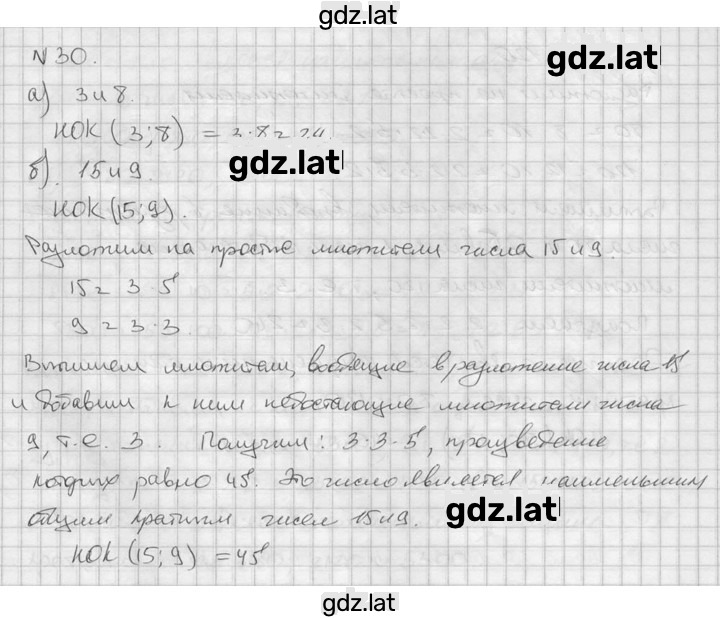 gdz.lat
N 30.
gdz.lat
а) 3 и 8.
НОК (3; 8) = 3·8 = 24.
gdz.lat
б). 15 и 9.
НОК (15; 9).
Разложим на простые множители числа 15 и 9.
15 = 3·5
9 = 3·3.
Выпишем множители, входящие в разложение числа 15
и добавим к ним недостающие множители числа
9, т.е. 3. Получим: 3·3·5, произведение
которых равно 45. Это число является наименьшим
общим кратным чисел 15 и 9.
gdz.lat
НОК (15; 9) = 45
gdz.lat